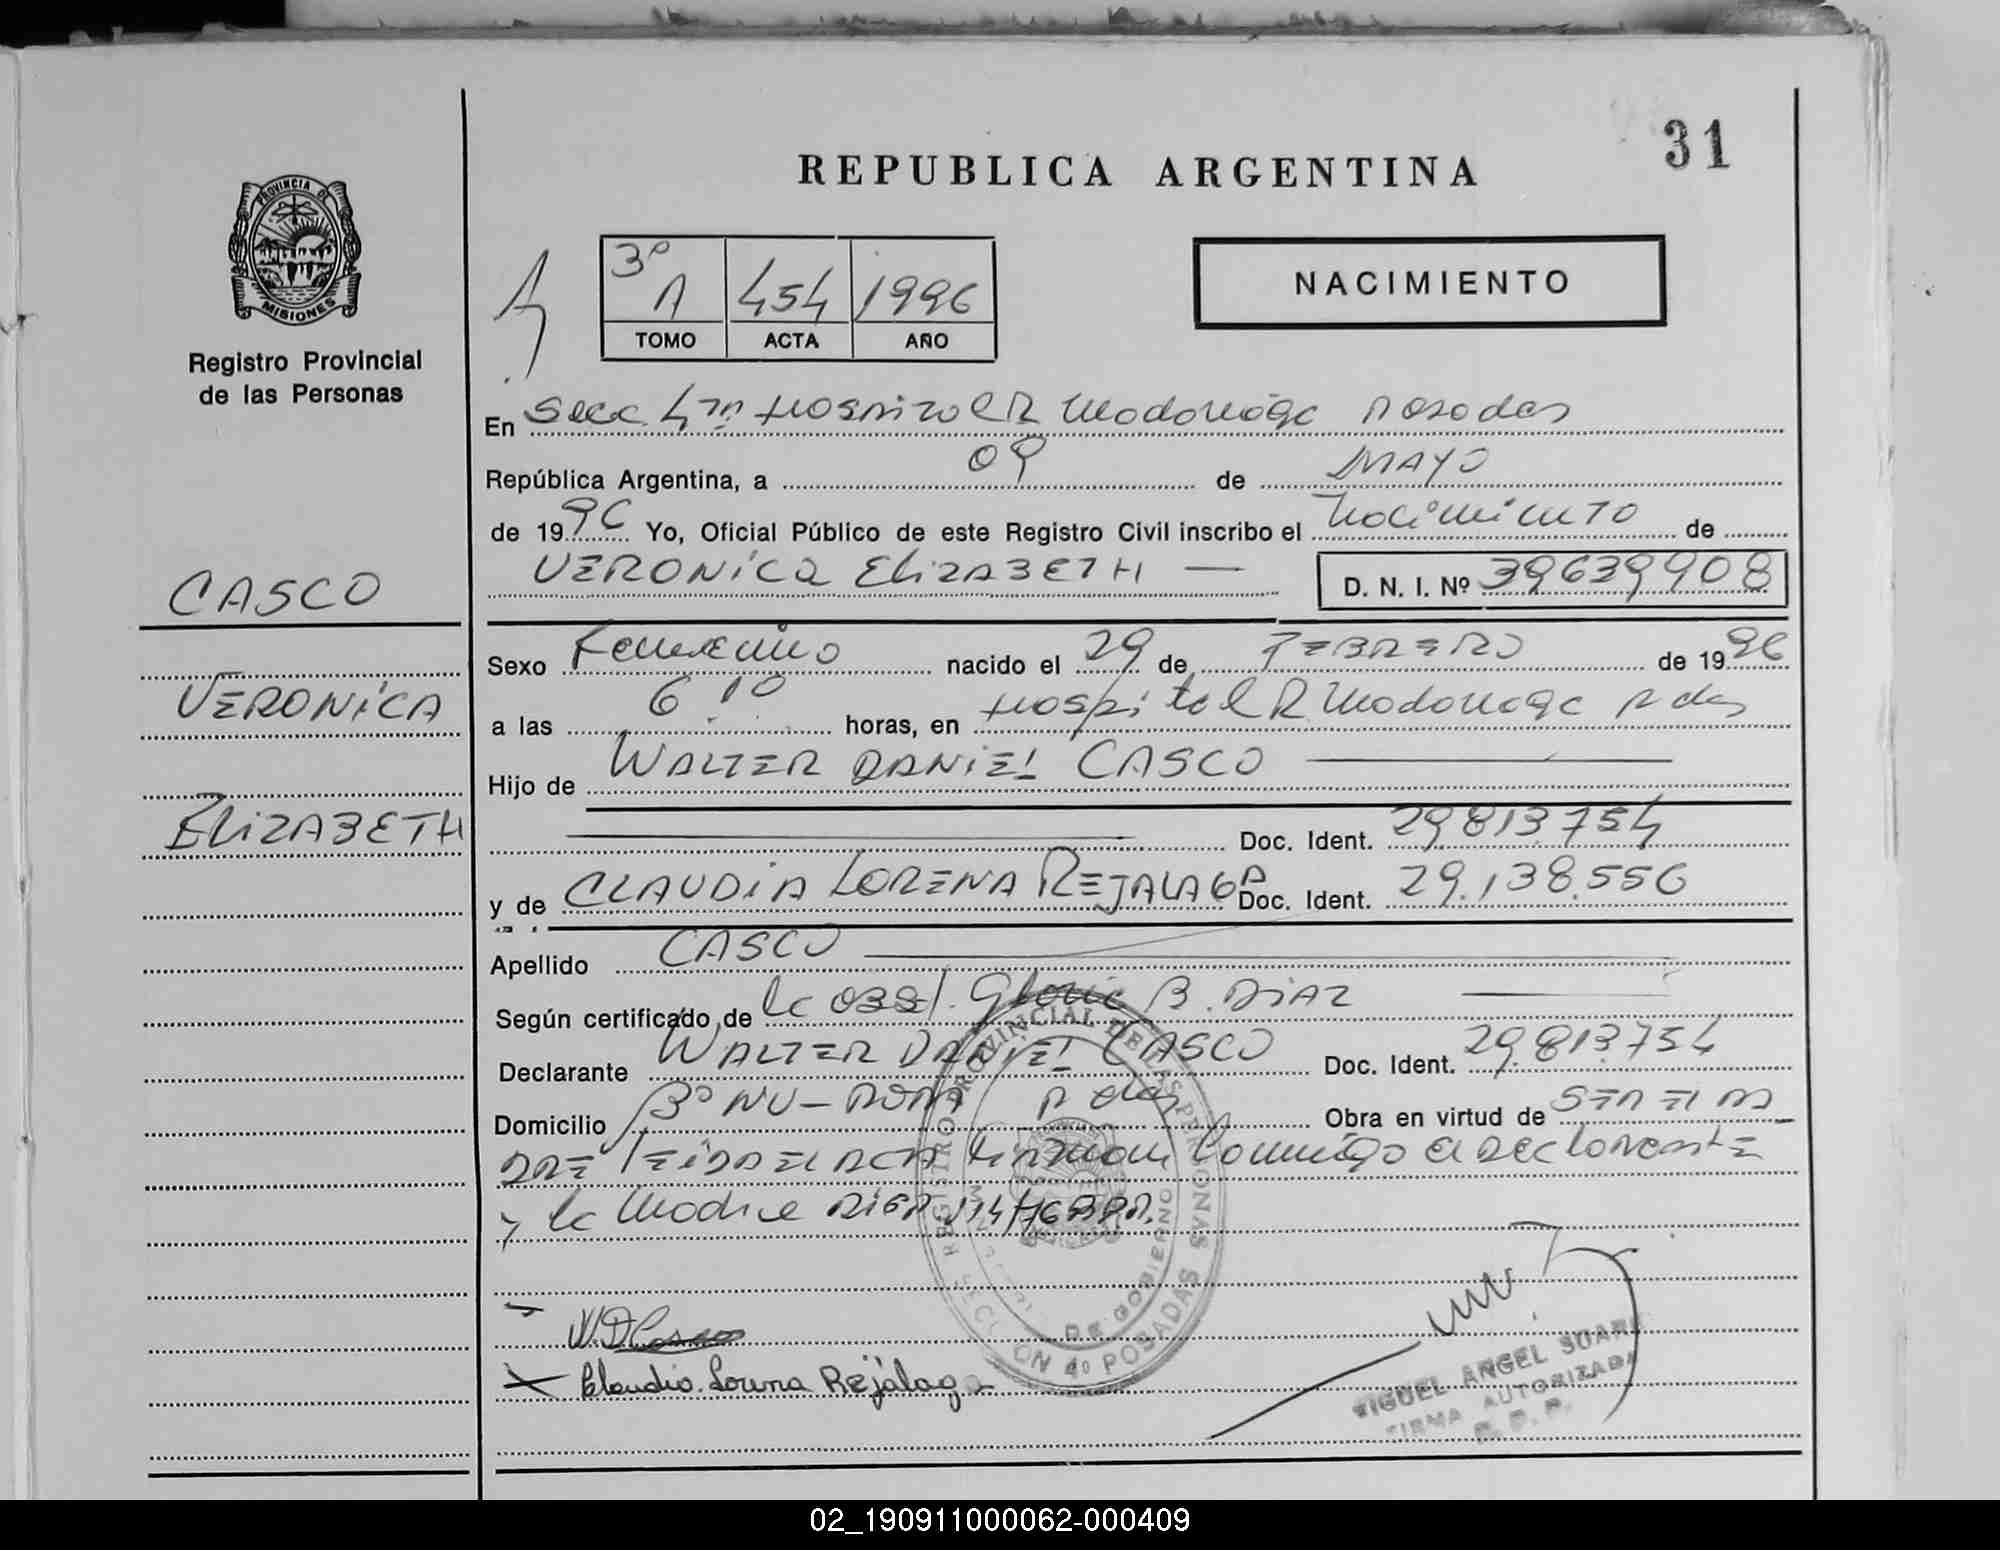 31
REPUBLICA ARGENTINA
PROVINCIA DE
MISIONES
Registro Provincial
de las Personas
3º A 454 1996
TOMO ACTA AÑO
NACIMIENTO
En Secc 4ta Hospital R Madariaga Posadas
República Argentina, a 09 de MAYO
de 1996 Yo, Oficial Público de este Registro Civil inscribo el Nacimiento de
VERONICA ELIZABETH — D. N. I. Nº 39639908
CASCO
VERONICA
ELIZABETH
Sexo Femenino nacido el 29 de FEBRERO de 1996
a las 6 10 horas, en Hospital R Madariaga Pdas
Hijo de WALTER DANIEL CASCO
Doc. Ident. 29.813.754
y de CLAUDIA LORENA REJALAGA Doc. Ident. 29.138.556
Apellido CASCO
Según certificado de la obst. Gloria B. DIAZ
Declarante WALTER DANIEL CASCO Doc. Ident. 29.813.754
Domicilio Bº Pdas Obra en virtud de SER EL
PADRE LEIDA EL ACTA Firman Conmigo el DEClarante
y la Madre
REGISTRO PROVINCIAL DE LAS PERSONAS
DE GOBIERNO
SECCION 4º POSADAS
W.D Casco
Claudia Lorena Rejálaga
MIGUEL ANGEL SUAREZ
FIRMA AUTORIZADA
R. P. P.
02_190911000062-000409